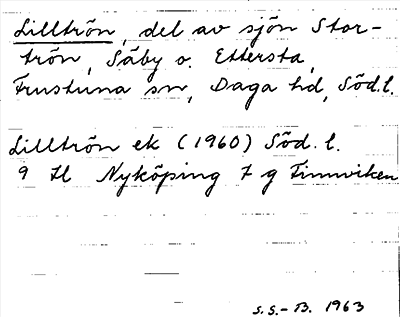 Lilltrön, del av sjön Stor-
trön, Säby o. Ettersta,
Frustuna sn, Daga hd, Söd.l.
Lilltrön ek (1960) Söd. l.
9 H Nyköping 7 g Finnviken
S.S.-B. 1963